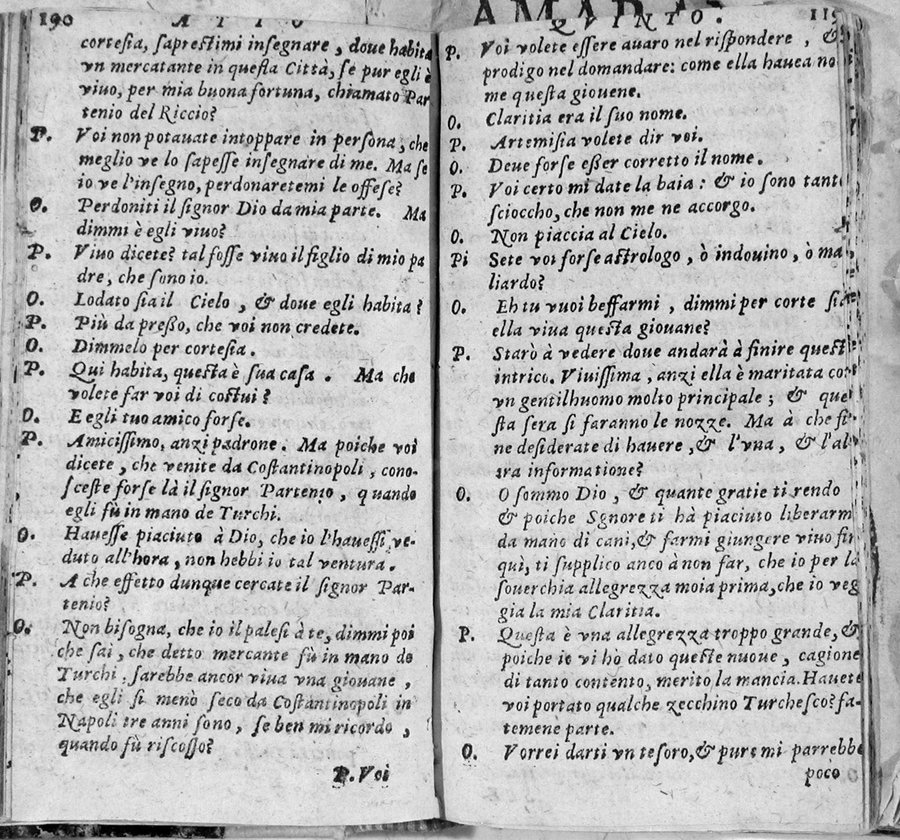 190 ATTO
cortesia, saprestimi insegnare, doue habita
vn mercatante in questa Città, se pur egli è
viuo, per mia buona fortuna, chiamato Par
tenio del Riccio?
P. Voi non potauate intoppare in persona, che
meglio ve lo sapesse insegnare di me. Ma se
io ve l'insegno, perdonaretemi le offese?
O. Perdoniti il signor Dio da mia parte. Ma
dimmi è egli viuo?
P. Viuo dicete? tal fosse viuo il figlio di mio pa
dre, che sono io.
O. Lodato sia il Cielo, & doue egli habita?
P. Più da presso, che voi non credete.
O. Dimmelo per cortesia.
P. Qui habita, questa è sua casa. Ma che
volete far voi di costui?
O. E egli tuo amico forse.
P. Amicissimo, anzi padrone. Ma poiche voi
dicete, che venite da Costantinopoli, cono-
sceste forse là il signor Partenio, quando
egli fù in mano de Turchi.
O. Hauesse piaciuto à Dio, che io l'hauessi ve-
duto all'hora, non hebbi io tal ventura.
P. A che effetto dunque cercate il signor Par-
tenio?
O. Non bisogna, che io il palesi à te, dimmi poi
che sai, che detto mercante fù in mano de
Turchi, sarebbe ancor viua vna giouane,
che egli si menò seco da Costantinopoli in
Napoli tre anni sono, se ben mi ricordo,
quando fù riscosso?
P. Voi
QVINTO.
P. Voi volete essere auaro nel rispondere, &
prodigo nel domandare: come ella hauea no
me questa giouene.
O. Claritia era il suo nome.
P. Artemisia volete dir voi.
O. Deue forse esser corretto il nome.
P. Voi certo mi date la baia: & io sono tant
scioccho, che non me ne accorgo.
O. Non piaccia al Cielo.
Pi Sete voi forse astrologo, ò indouino, ò ma
liardo?
O. Eh tu vuoi beffarmi, dimmi per corte sia
ella viua questa giouane?
P. Starò à vedere doue andarà à finire quest
intrico. Viuissima, anzi ella è maritata co
vn gentilhuomo molto principale; & que
sta sera si faranno le nozze. Ma à che fi
ne desiderate di hauere, & l'vna, & l'al
tra informatione?
O. O sommo Dio, & quante gratie ti rendo
& poiche Sgnore ti hà piaciuto liberarm
da mano di cani, & farmi giungere viuo fin
qui, ti supplico anco à non far, che io per la
souerchia allegrezza moia prima, che io veg
gia la mia Claritia.
P. Questa è vna allegrezza troppo grande, &
poiche io vi hò dato queste nuoue, cagione
di tanto contento, merito la mancia. Hauete
voi portato qualche zecchino Turchesco? fa-
temene parte.
O. Vorrei darti vn tesoro, & pure mi parrebbe
poco